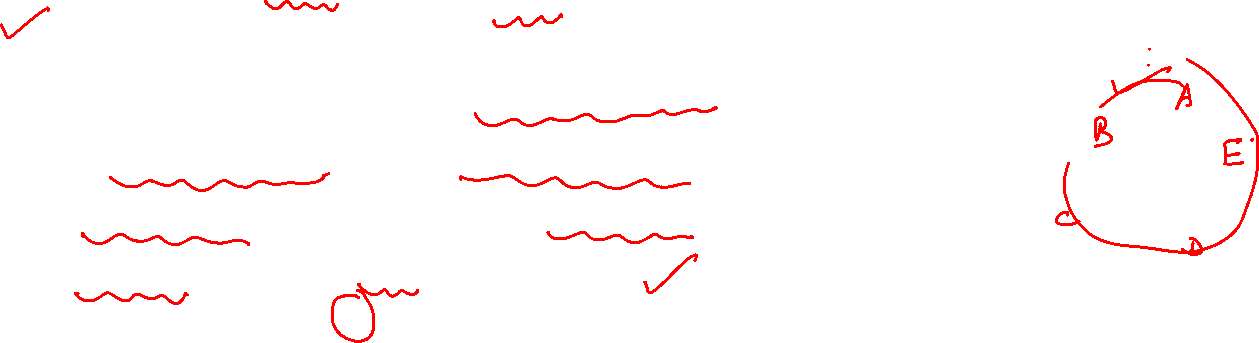 A
B
E
C
D